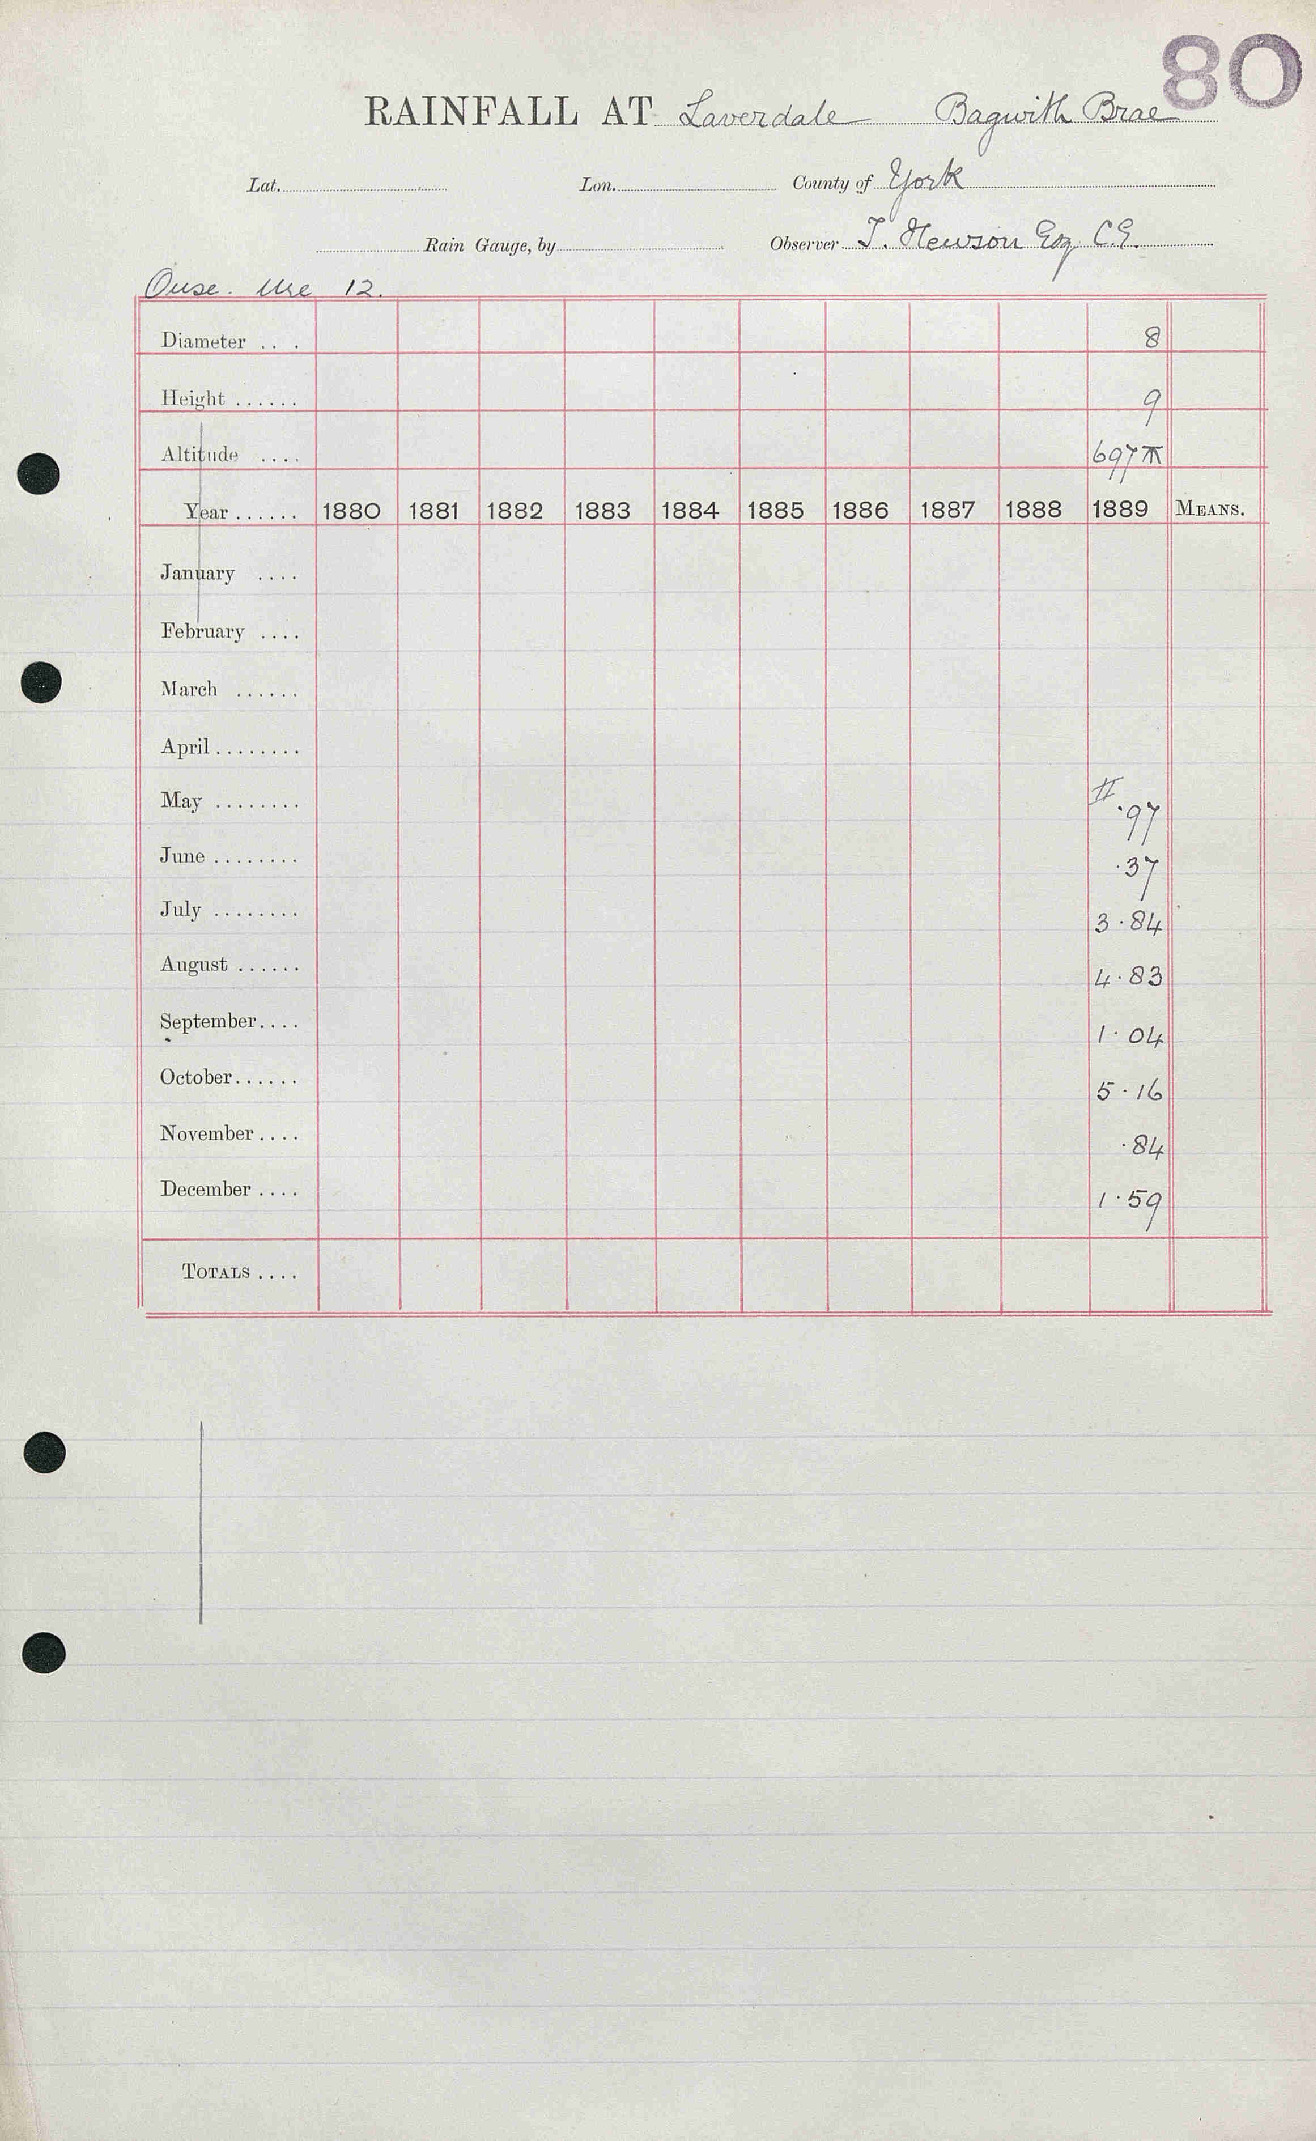 80
RAINFALL AT Laverdale Bagwith Brae
Lat. Lon. County of York
Rain Gauge, by Observer T. Hewson Esq. C.E.
Ouse. Ure 12.
Diameter .... 8
Height ...... 9
Altitude .... 697 T
Year ...... 1880 1881 1882 1883 1884 1885 1886 1887 1888 1889 MEANS.
January ....
February ....
March ......
April ........
May ........ II ·97
June ........ ·37
July ........ 3·84
August ...... 4·83
September .... 1·04
October ...... 5·16
November .... ·84
December .... 1·59
TOTALS ....